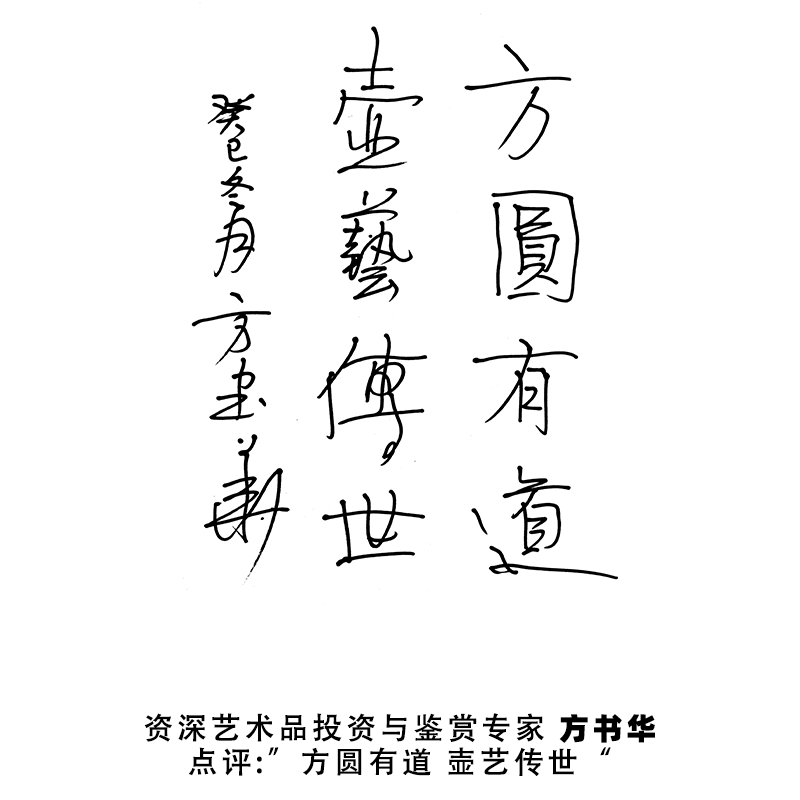 方圓有道
壺藝傳世
癸巳冬月 方书華
资深艺术品投资与鉴赏专家 方书华
点评:”方圆有道 壶艺传世“